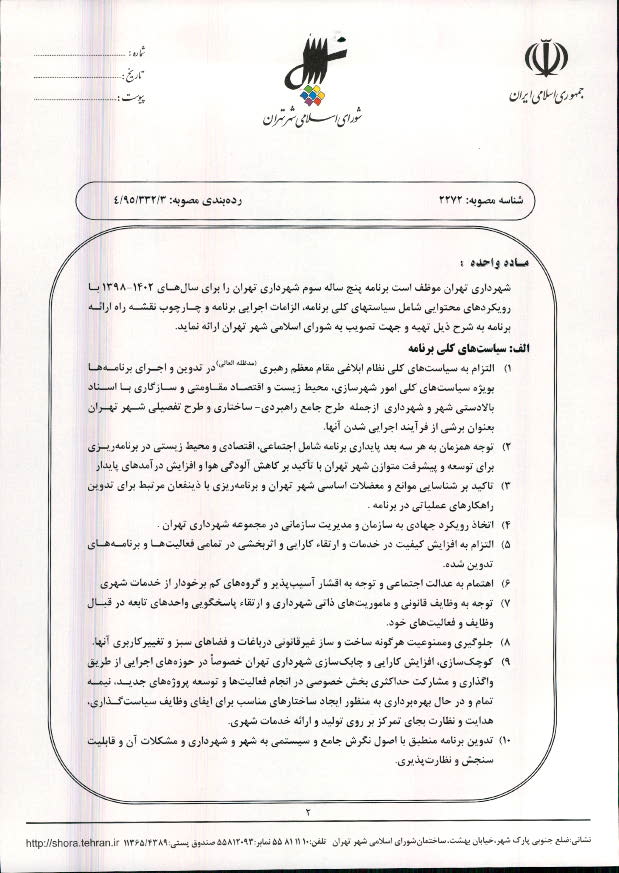 جمهوری اسلامی ایران
شورای اسلامی شهر تهران
شماره :
تاریخ :
پیوست :
شناسه مصوبه: ۲۲۷۲
رده‌بندی مصوبه: ۴/۹۵/۳۳۲/۳
مـاده واحده :
شهرداری تهران موظف است برنامه پنج ساله سوم شهرداری تهران را برای سال‌های ۱۴۰۲-۱۳۹۸ بـا
رویکردهای محتوایی شامل سیاستهای کلی برنامه، الزامات اجرایی برنامه و چـارچوب نقشـه راه ارائـه
برنامه به شرح ذیل تهیه و جهت تصویب به شورای اسلامی شهر تهران ارائه نماید.
الف: سیاست‌های کلی برنامه
۱) التزام به سیاست‌های کلی نظام ابلاغی مقام معظم رهبری (مدظله العالی) در تدوین و اجـرای برنامـه‌هـا
بویژه سیاست‌های کلی امور شهرسازی، محیط زیست و اقتصـاد مقـاومتی و سـازگاری بـا اسـناد
بالادستی شهر و شهرداری ازجمله طرح جامع راهبردی- ساختاری و طرح تفصیلی شـهر تهـران
بعنوان برشی از فرآیند اجرایی شدن آنها.
۲) توجه همزمان به هر سه بعد پایداری برنامه شامل اجتماعی، اقتصادی و محیط زیستی در برنامه‌ریـزی
برای توسعه و پیشرفت متوازن شهر تهران با تأکید بر کاهش آلودگی هوا و افزایش درآمدهای پایدار
۳) تاکید بر شناسایی موانع و معضلات اساسی شهر تهران و برنامه‌ریزی با ذینفعان مرتبط برای تدوین
راهکارهای عملیاتی در برنامه .
۴) اتخاذ رویکرد جهادی به سازمان و مدیریت سازمانی در مجموعه شهرداری تهران .
۵) التزام به افزایش کیفیت در خدمات و ارتقاء کارایی و اثربخشی در تمامی فعالیت‌هـا و برنامـه‌هـای
تدوین شده.
۶) اهتمام به عدالت اجتماعی و توجه به اقشار آسیب‌پذیر و گروه‌های کم برخودار از خدمات شهری
۷) توجه به وظایف قانونی و ماموریت‌های ذاتی شهرداری و ارتقاء پاسخگویی واحدهای تابعه در قبـال
وظایف و فعالیت‌های خود.
۸) جلوگیری وممنوعیت هرگونه ساخت و ساز غیرقانونی درباغات و فضاهای سبز و تغییرکاربری آنها.
۹) کوچک‌سازی، افزایش کارایی و چابک‌سازی شهرداری تهران خصوصاً در حوزه‌های اجرایی از طریق
واگذاری و مشارکت حداکثری بخش خصوصی در انجام فعالیت‌ها و توسعه پروژه‌های جدیـد، نیمـه
تمام و در حال بهره‌برداری به منظور ایجاد ساختارهای مناسب برای ایفای وظایف سیاست‌گـذاری،
هدایت و نظارت بجای تمرکز بر روی تولید و ارائه خدمات شهری.
۱۰) تدوین برنامه منطبق با اصول نگرش جامع و سیستمی به شهر و شهرداری و مشکلات آن و قابلیت
سنجش و نظارت‌پذیری.
۲
نشانی:ضلع جنوبی پارک شهر،خیابان بهشت،ساختمان‌شورای اسلامی شهر تهران تلفن:۱۰ ۱۱ ۸۱ ۵۵ نمابر:۵۵۸۱۲۰۹۳ صندوق پستی:۱۱۳۶۵/۴۳۸۹ http://shora.tehran.ir